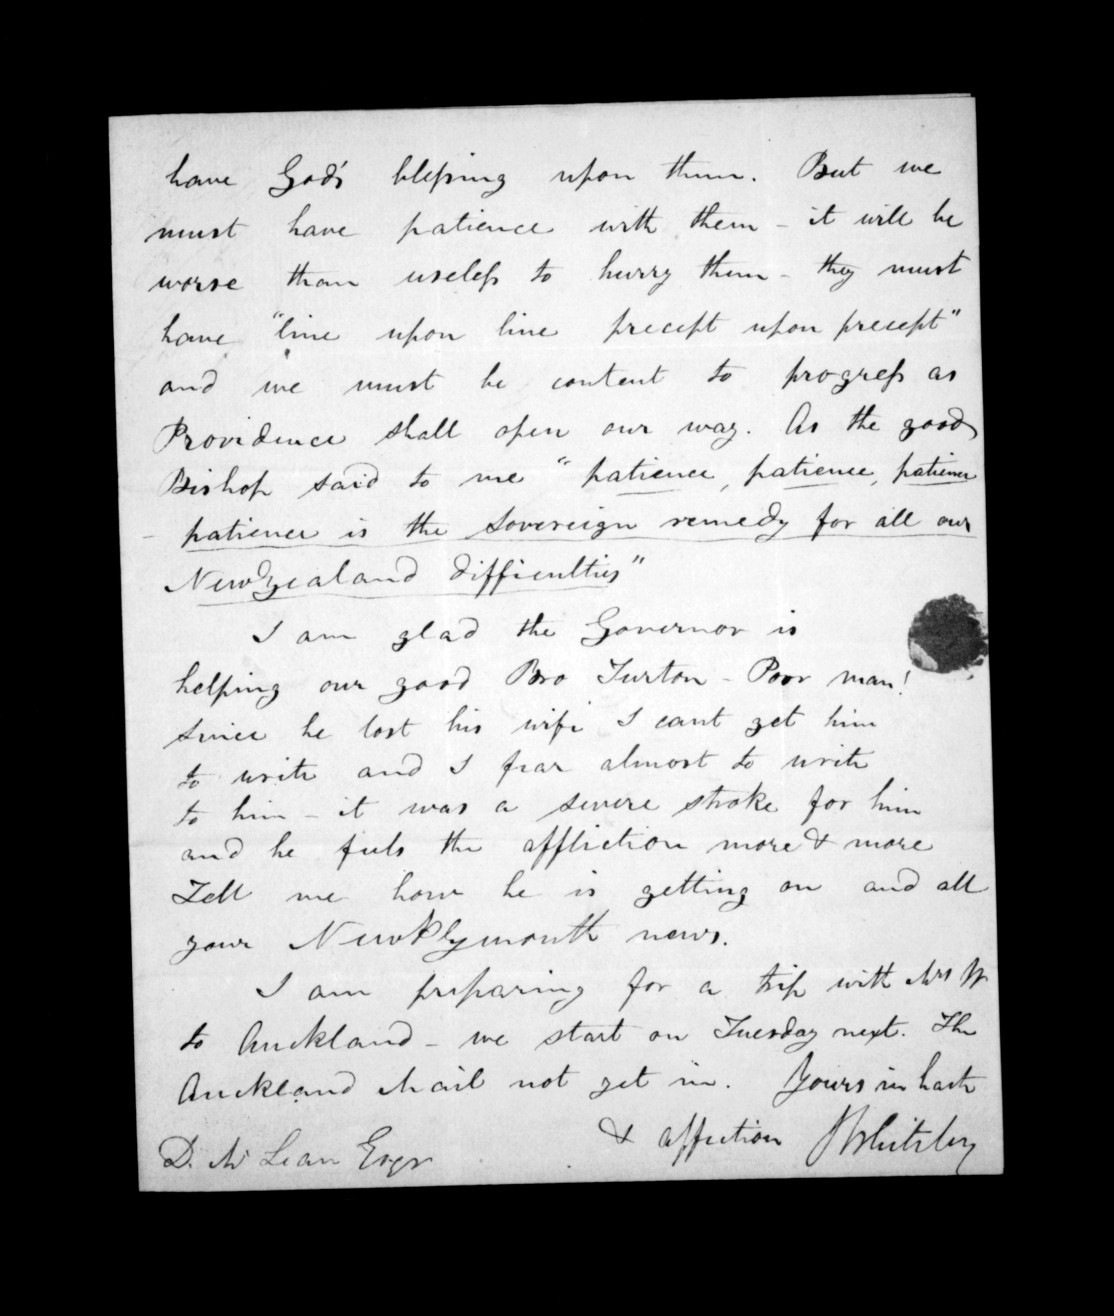 have God's blessing upon them. But we
must have patience with them - it will be
worse than useless to hurry them - they must
have "line upon line precept upon precept"
and we must be content to progress as
Providence shall open our way. As the good
Bishop said to me "patience, patience, patience
- patience is the sovereign remedy for all our
New Zealand difficulties"
I am glad the Governor is
helping our good Bro Turton - Poor man!
since he lost his wife I cant get him
to write and I fear almost to write
to him - it was a severe stroke for him
and he feels the affliction more & more
Tell me how he is getting on and all
your New Plymouth news.
I am preparing for a trip with Mrs W
to Auckland - we start on Tuesday next. The
Auckland Mail not yet in. Yours in haste
& affection J Whiteley
D. Mc Lean Esqr